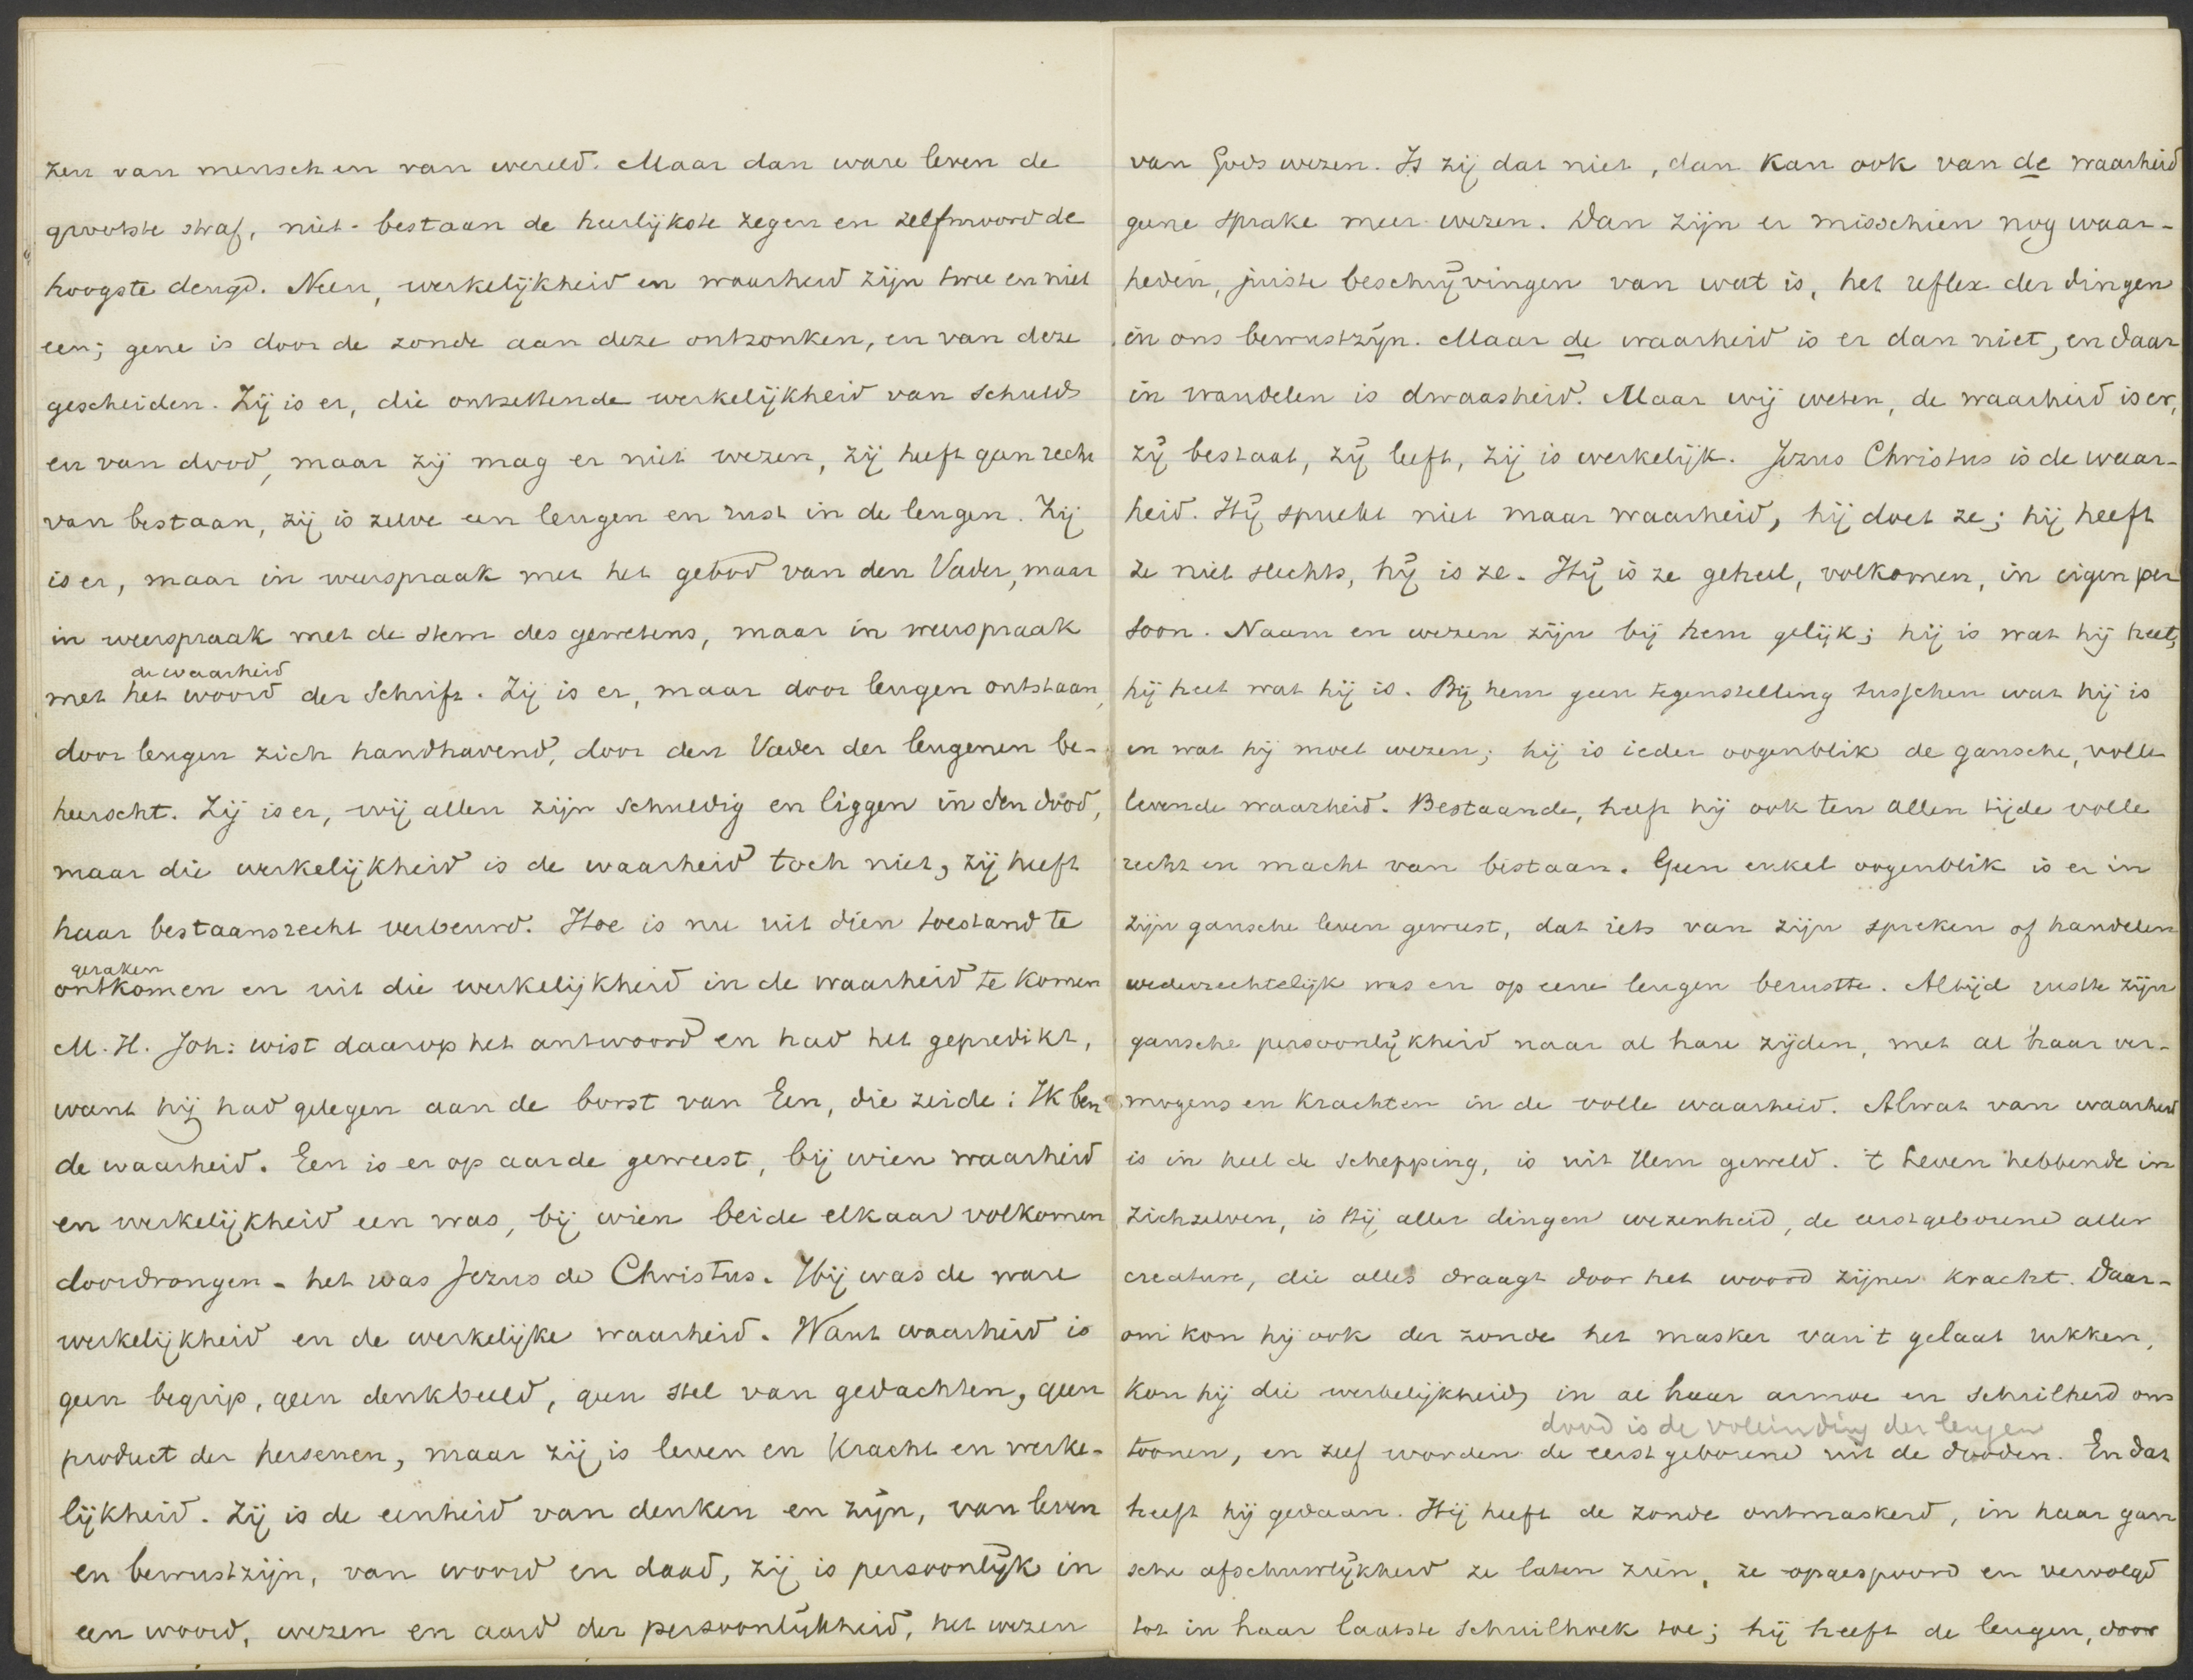 zen van mensch en van wereld. Maar dan ware leven de
grootste straf, niet-bestaan de heerlijkste zegen en zelfmoord de
hoogste deugd. Neen, werkelijkheid en waarheid zijn twee en niet
een; gene is door de zonde aan deze ontzonken, en van deze
gescheiden. Zij is er, die ontzettende werkelijkheid van schuld
en van dood, maar zij mag er niet wezen, zij heeft geen recht
van bestaan, zij is zelve een leugen en rust in de leugen. Zij
is er, maar in weerspraak met het gebod van den Vader, maar
in weerspraak met de stem des gewetens, maar in weerspraak
de waarheid
met het woord der Schrift. Zij is er, maar door leugen ontstaan,
door leugen zich handhavend, door den Vader der leugenen be-
heerscht. Zij is er, wij allen zijn schuldig en liggen in den dood,
maar die werkelijkheid is de waarheid toch niet, zij heeft
haar bestaansrecht verbeurd. Hoe is nu uit dien toestand te
geraken
ontkomen en uit die werkelijkheid in de waarheid te komen
M. H. Joh: wist daarop het antwoord en had het gepredikt,
want hij had gelegen aan de borst van Een, die zeide: Ik ben
de waarheid. Een is er op aarde geweest, bij wien waarheid
en werkelijkheid een was, bij wien beide elkaar volkomen
doordrongen - het was Jezus de Christus. Hij was de ware
werkelijkheid en de werkelijke waarheid. Want waarheid is
geen begrip, geen denkbeeld, geen stel van gedachten, geen
product der hersenen, maar zij is leven en kracht en werke-
lijkheid. Zij is de eenheid van denken en zijn, van leven
en bewustzijn, van woord en daad, zij is persoonlijk in
een woord, wezen en aard der persoonlijkheid, het wezen
van Gods wezen. Is zij dat niet, dan kan ook van de waarheid
geene sprake meer wezen. Dan zijn er misschien nog waar-
heden, juiste beschrijvingen van wat is, het reflex der dingen
in ons bewustzijn. Maar de waarheid is er dan niet, en daar
in wandelen is dwaasheid. Maar wij weten, de waarheid is er,
zij bestaat, zij leeft, zij is werkelijk. Jezus Christus is de waar-
heid. Hij spreekt niet maar waarheid, hij doet ze; hij heeft
ze niet slechts, hij is ze. Hij is ze geheel, volkomen, in eigen per
soon. Naam en wezen zijn bij hem gelijk; hij is wat hij heet,
hij heet wat hij is. Bij hem geen tegenstelling tusschen wat hij is
en wat hij moet wezen; hij is ieder oogenblik de gansche, volle
levende waarheid. Bestaande, heeft hij ook ten allen tijde volle
recht en macht van bestaan. Geen enkel oogenblik is er in
zijn gansche leven geweest, dat iets van zijn spreken of handelen
wederrechtelijk was en op eene leugen berustte. Altijd rustte zijn
gansche persoonlijkheid naar al hare zijden, met al haar ver-
mogens en krachten in de volle waarheid. Alwat van waarheid
is in heel de schepping, is uit Hem geweld. 't Leven hebbende in
zichzelven, is Hij aller dingen wezenheid, de eerstgeborene aller
creature, die alles draagt door het woord zijner kracht. Daar-
om kon hij ook der zonde het masker van 't gelaat rukken,
kon hij die werkelijkheid in al haar armoe en schrilheid ons
dood is de volleinding der leugen
toonen, en zelf worden de eerstgeborene uit de dooden. En dat
heeft hij gedaan. Hij heeft de zonde ontmaskerd, in haar gan
sche afschuwlijkheid ze laten zien, ze opgespoord en vervolgd
tot in haar laatste schuilhoek toe; hij heeft de leugen, door